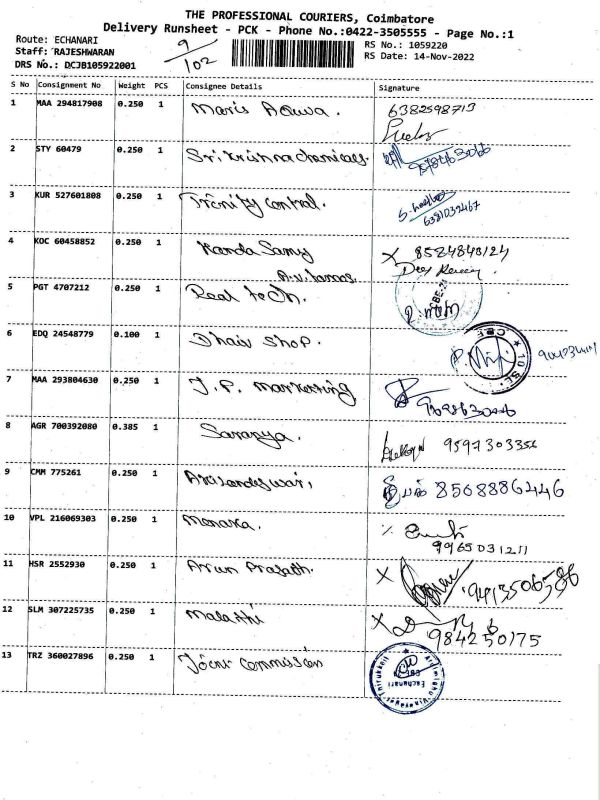 THE PROFESSIONAL COURIERS, Coimbatore
Delivery Runsheet - PCK - Phone No.:0422-3505555 - Page No.:1
Route: ECHANARI
Staff: RAJESHWARAN
DRS No.: DCJB105922001
9/102
RS No.: 1059220
RS Date: 14-Nov-2022
S No Consignment No Weight PCS Consignee Details Signature
1 MAA 294817908 0.250 1 Maris Aquva. 6382598713
2 STY 60479 0.250 1 Sri Krishna chemicals.
3 KUR 527601808 0.250 1 Trinity control. 6381032467
4 KOC 60458852 0.250 1 Kanda Samy 8524843124
5 PGT 4707212 0.250 1 Real tech.
6 EDQ 24548779 0.100 1 Dhair Shop.
7 MAA 293804630 0.250 1 J.P. Marketting
8 AGR 700392080 0.385 1 Saranya. 9597303356
9 CMM 775261 0.250 1 8508886446
10 VPL 216069303 0.250 1 Menaka.
9965031211
11 HSR 2552930 0.250 1 Arun Prasath.
12 SLM 307225735 0.250 1 Malathi
984250175
13 TRZ 360027896 0.250 1 Joint Commission